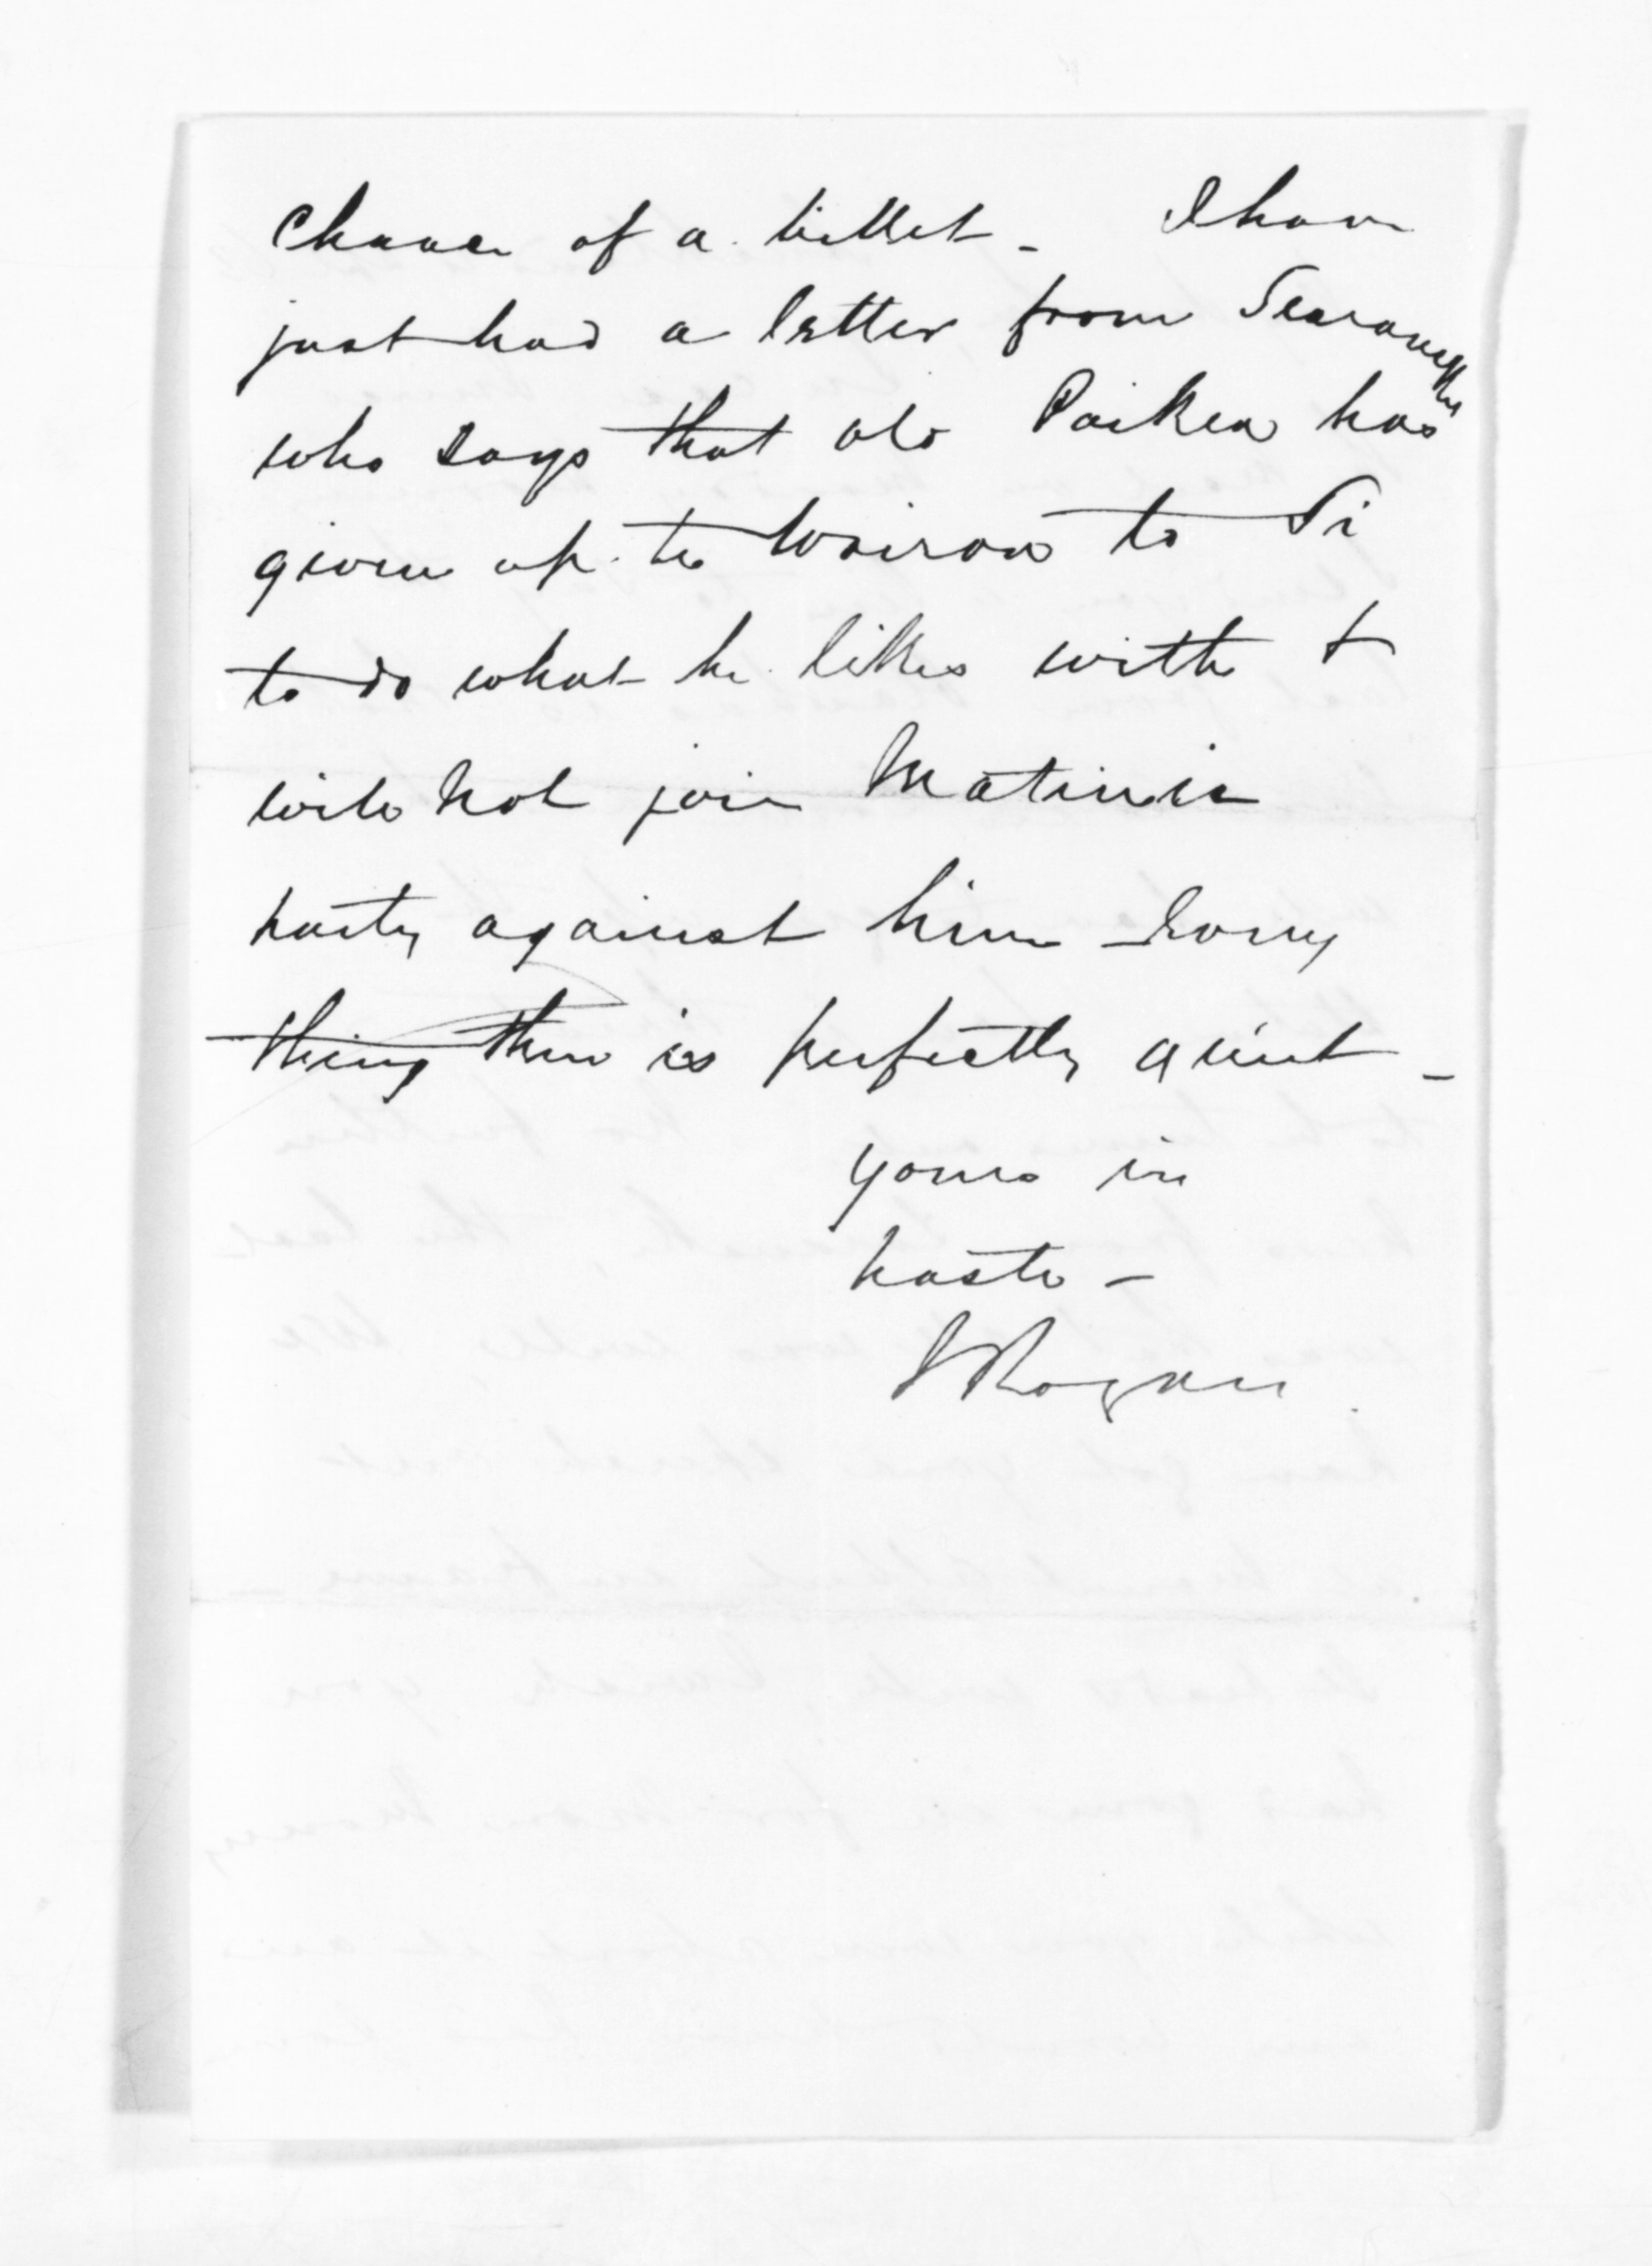 chance of a billet _ I have
just had a letter from Searancke
who says that old Paikea has
given up the Wairoa to Ti
to do what he likes with &
will not join Matiu's
party against him _ Every
thing there is perfectly quiet _
yours in
haste _
J Rogan